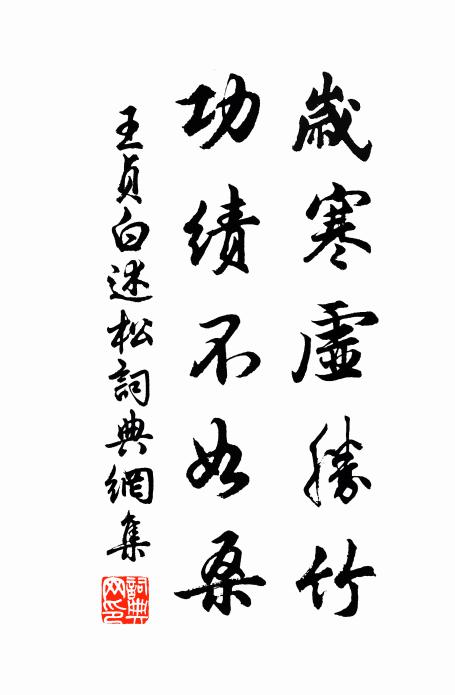 歲寒虛勝竹
功績不如桑
王貞白述松詞典網集
詞典網印